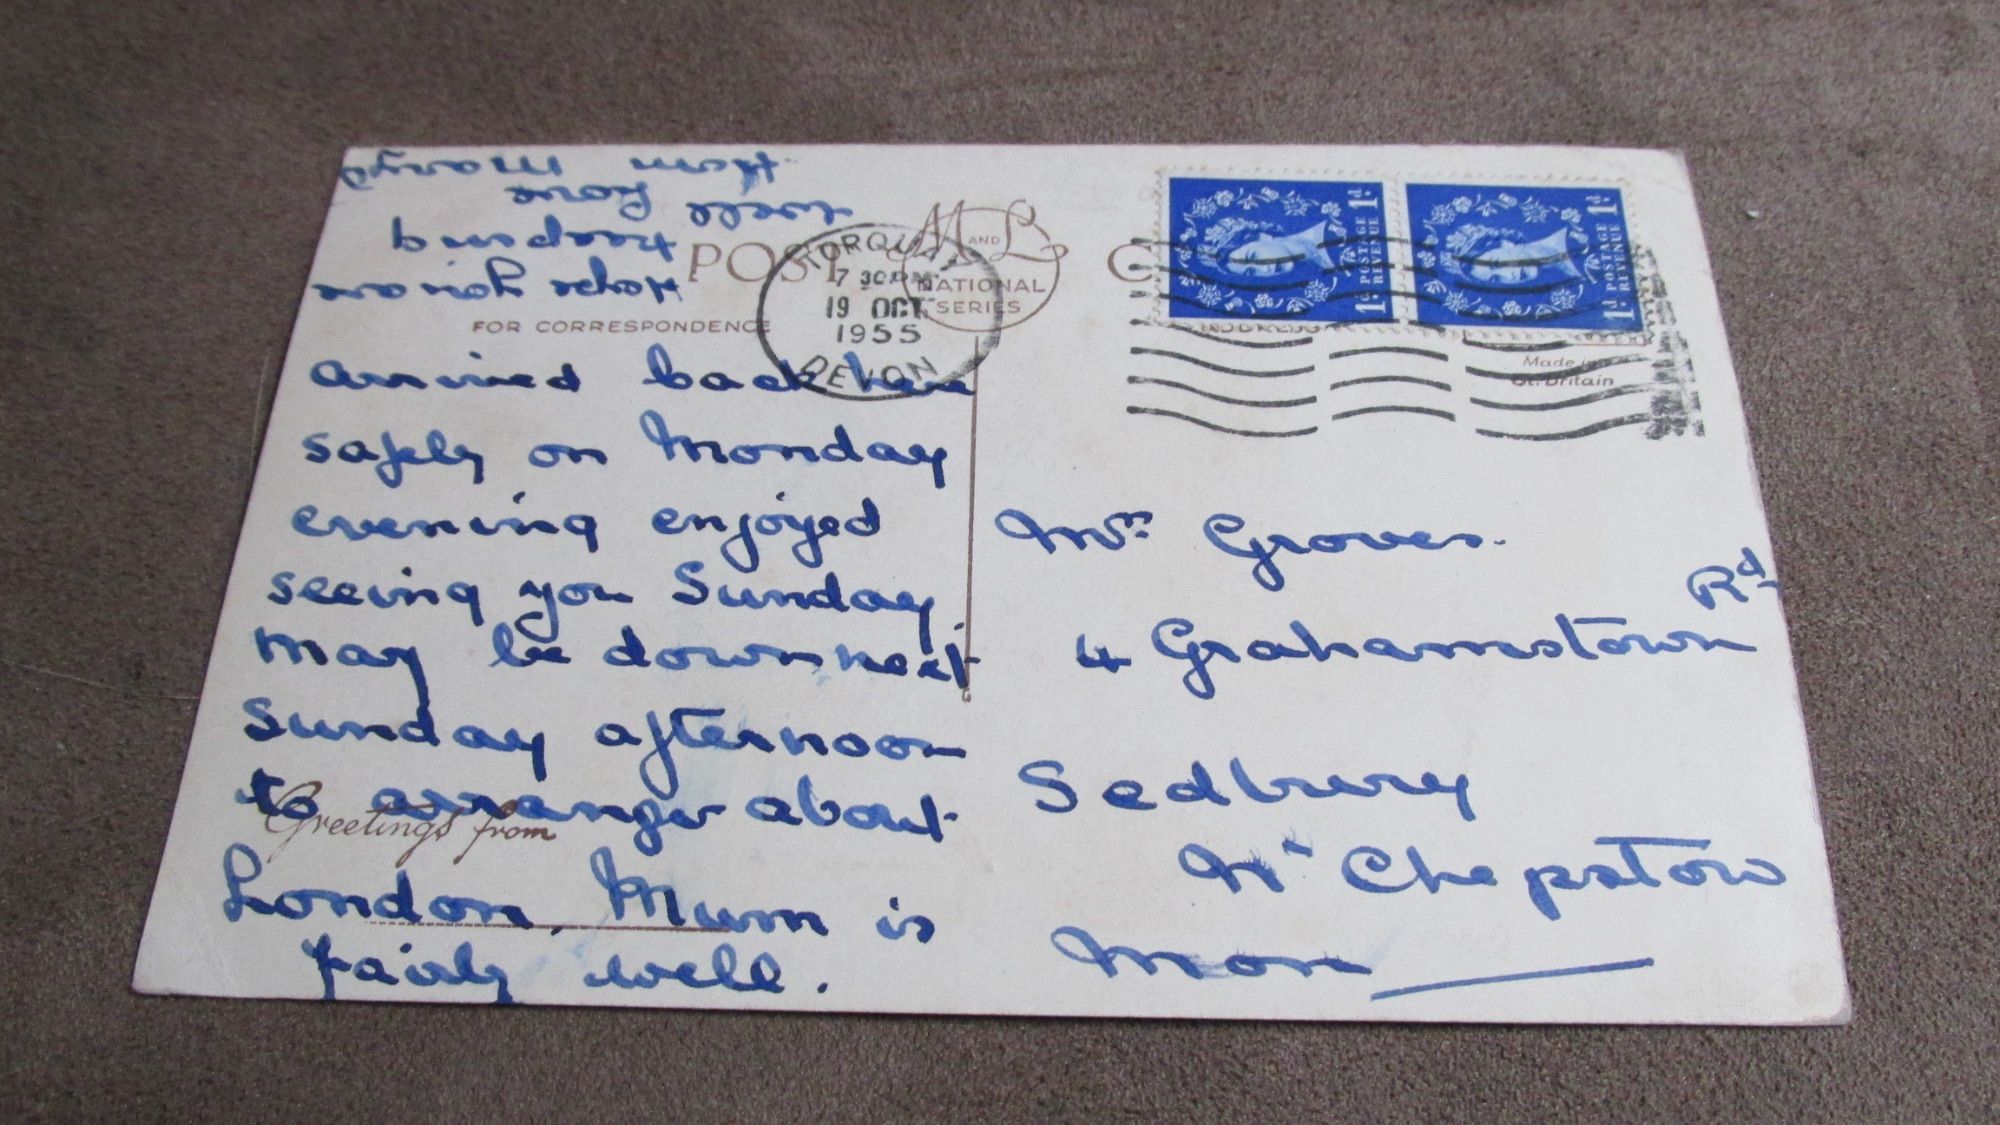 POST C
M AND L
NATIONAL
SERIES
FOR CORRESPONDENCE
ADDRESS
TORQUAY
7 30 PM
19 OCT
1955
DEVON
1D POSTAGE REVENUE 1D
1D POSTAGE REVENUE 1D
Made in
Gt. Britain
arrived back here
safely on Monday
evening enjoyed
seeing you Sunday
may be down next
Sunday afternoon
to arrange about
London, Mum is
fairly well.
Hope you are
keeping
well love
from
Greetings from
Mrs Groves.
4 Grahamstown Rd
Sedbury
Nr Chepstow
Mon